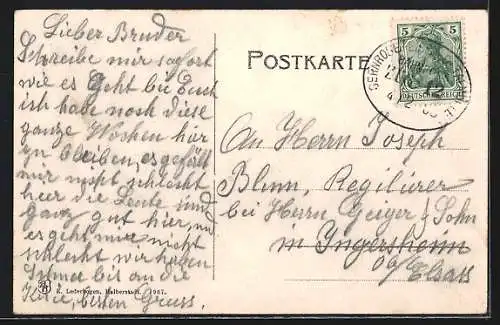 Lieber Bruder
Schreibe mir sofort
wie es Geht bei Euch
ich habe noch diese
ganze Wochen hir
zu bleiben, es gefällt
mir nicht schlecht
hier die Leute und
ganz gut hier, und
es geht mir nicht
schlecht wir haben
Schnee bis an die
Knie, besten Gruss.
K. Lederbogen, Halberstadt. 1967.
POSTKARTE
5 5
DEUTSCHES REICH
GERNRODE
12
An Herrn Joseph
Blum,
bei Herrn Geiger & Sohn
in Ingersheim
Elsass